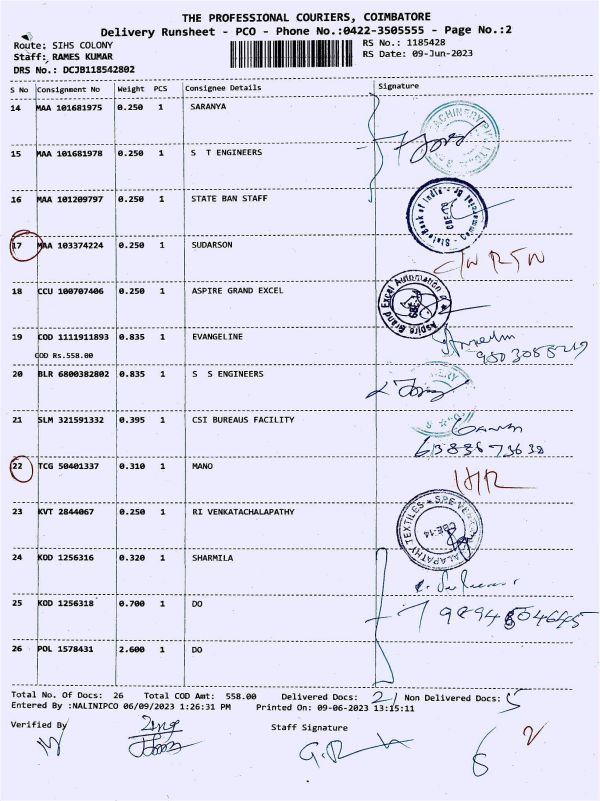 THE PROFESSIONAL COURIERS, COIMBATORE
Delivery Runsheet - PCO - Phone No.:0422-3505555 - Page No.:2
Route: SIHS COLONY RS No.: 1185428
Staff: RAMES KUMAR RS Date: 09-Jun-2023
DRS No.: DCJB118542802
S No Consignment No Weight PCS Consignee Details Signature
14 MAA 101681975 0.250 1 SARANYA
15 MAA 101681978 0.250 1 S T ENGINEERS
16 MAA 101209797 0.250 1 STATE BAN STAFF
17 MAA 103374224 0.250 1 SUDARSON
18 CCU 100707406 0.250 1 ASPIRE GRAND EXCEL
19 COD 1111911893 0.835 1 EVANGELINE
COD Rs.558.00
20 BLR 6800382802 0.835 1 S S ENGINEERS
21 SLM 321591332 0.395 1 CSI BUREAUS FACILITY
22 TCG 50401337 0.310 1 MANO
23 KVT 2844067 0.250 1 RI VENKATACHALAPATHY
24 KOD 1256316 0.320 1 SHARMILA
25 KOD 1256318 0.700 1 DO
26 POL 1578431 2.600 1 DO
Total No. Of Docs: 26 Total COD Amt: 558.00 Delivered Docs: 21 Non Delivered Docs: 5
Entered By :NALINIPCO 06/09/2023 1:26:31 PM Printed On: 09-06-2023 13:15:11
Verified By Staff Signature